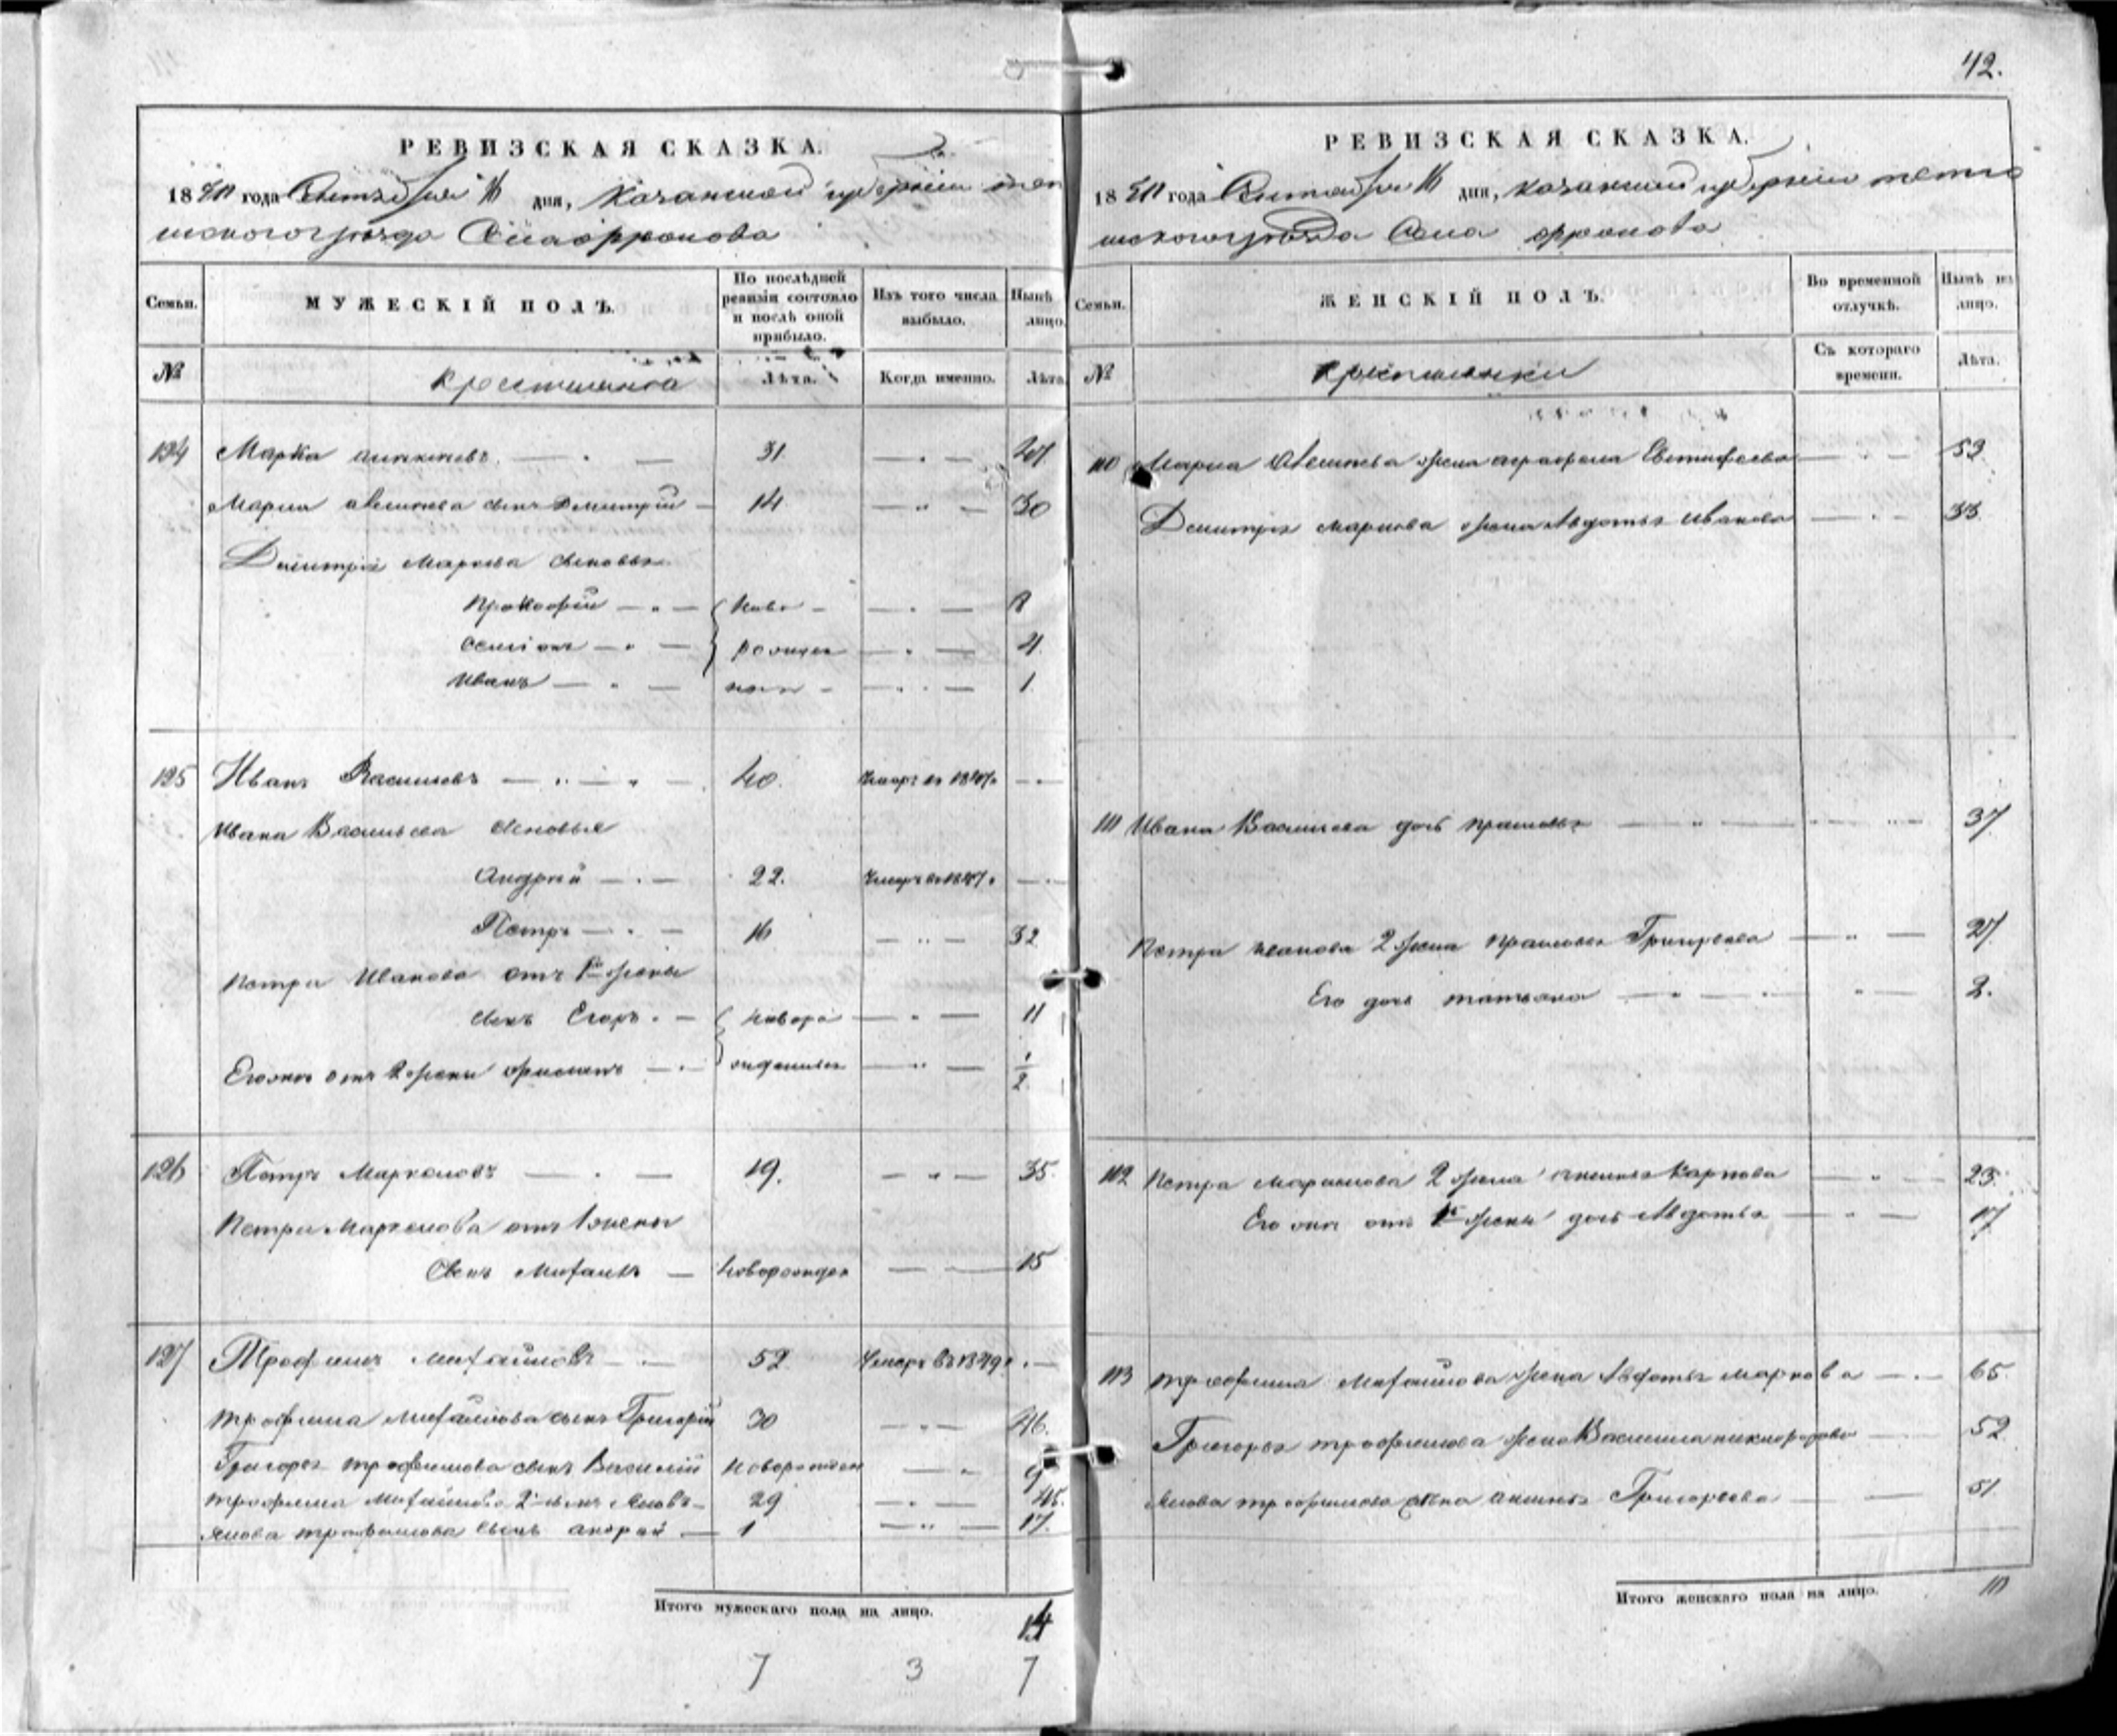 42.
РЕВИЗСКАЯ СКАЗКА.
1850 года Октября дня, Казанской губернии тетю
шскаго уезда Села
Семьи.
МУЖЕСКІЙ ПОЛЪ.
По послѣдней ревизіи состояло и послѣ оной прибыло.
Изъ того числа выбыло.
Нынѣ лицо.
№
Лѣта.
Когда именно.
Лѣта
124 Марка 31. 47
Марка сынъ Дмитрій 14 30
Дмитрія Маркова сыновья
Прокофій Ново 8
Семіонъ рожден 4.
Иванъ 1
125 Иванъ Васильевъ 40. Умеръ въ 1847.
Ивана Васильева сыновья
Андрей 22. Умеръ въ 1847.
Петръ 16 32
Петра Иванова отъ 1й жены
сынъ Егоръ новоро 11
Его же отъ 2 жены жденные 1/2
126 Петръ Маркеловъ 19. 35.
Петра Маркелова отъ 1 жены
Сынъ Михаилъ новорожден 15
127 Трофимъ Михайловъ 52 Умеръ въ 1849.
Трофима Михайлова сынъ Григорій 30 46.
Григорья Трофимова сынъ Василій Новорожден 9
Трофима Михайлова 2й сынъ Яковъ 29 45.
Якова Трофимова сынъ Андрей 1 17.
Итого мужескаго пола на лицо.
14
7 3 7
РЕВИЗСКАЯ СКАЗКА.
1850 года Октября дня, Казанской губернии тетю
шскаго уезда Села
Семьи.
ЖЕНСКІЙ ПОЛЪ.
Во временной отлучкѣ.
Нынѣ на лицо.
№
Съ котораго времени.
Лѣта.
110 Марка жена Аграфена 53
Дмитрія Маркова жена Авдотья Иванова 33
111 Ивана Васильева дочь Прасковья 37
Петра Иванова 2 жена Прасковья Григорьева 27
Его дочь Татьяна 2.
112 Петра Маркелова 2 жена Аксинья Карпова 25.
Его же отъ 1й жены дочь Авдотья 17
113 Трофима Михайлова жена Авдотья Маркова 65.
Григорья Трофимова жена Василиса Никифорова 52
Якова Трофимова жена Аксинья Григорьева 51
Итого женскаго пола на лицо. 10